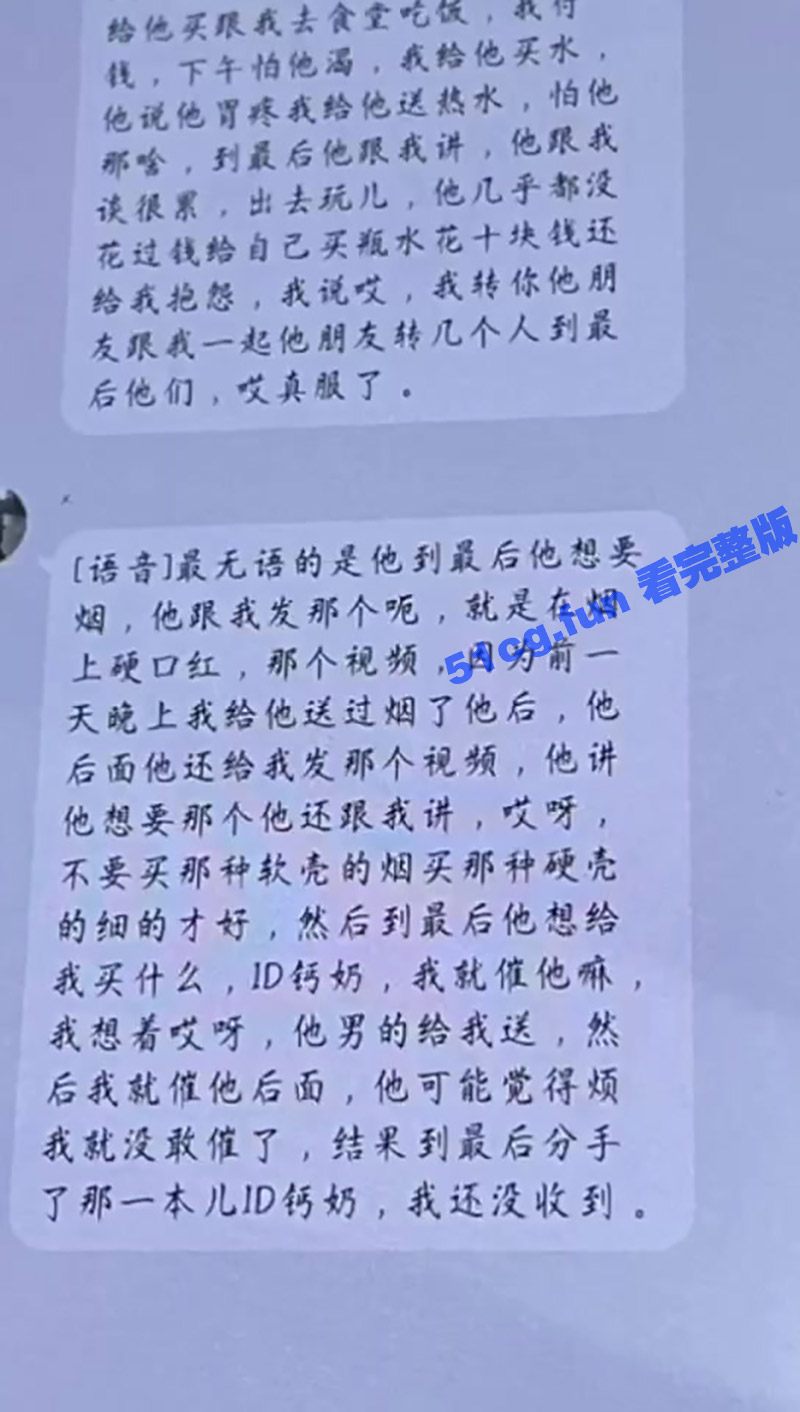 给他买跟我去食堂吃饭，我付
钱，下午怕他渴，我给他买水，
他说他胃疼我给他送热水，怕他
那啥，到最后他跟我讲，他跟我
谈很累，出去玩儿，他几乎都没
花过钱给自己买瓶水花十块钱还
给我抱怨，我说哎，我转你他朋
友跟我一起他朋友转几个人到最
后他们，哎真服了。
[语音]最无语的是他到最后他想要
烟，他跟我发那个呃，就是在烟
上硬口红，那个视频，因为前一
天晚上我给他送过烟了他后，他
后面他还给我发那个视频，他讲
他想要那个他还跟我讲，哎呀，
不要买那种软壳的烟买那种硬壳
的细的才好，然后到最后他想给
我买什么，ID钙奶，我就催他嘛，
我想着哎呀，他男的给我送，然
后我就催他后面，他可能觉得烦
我就没敢催了，结果到最后分手
了那一本儿ID钙奶，我还没收到。
51cg.fun 看完整版